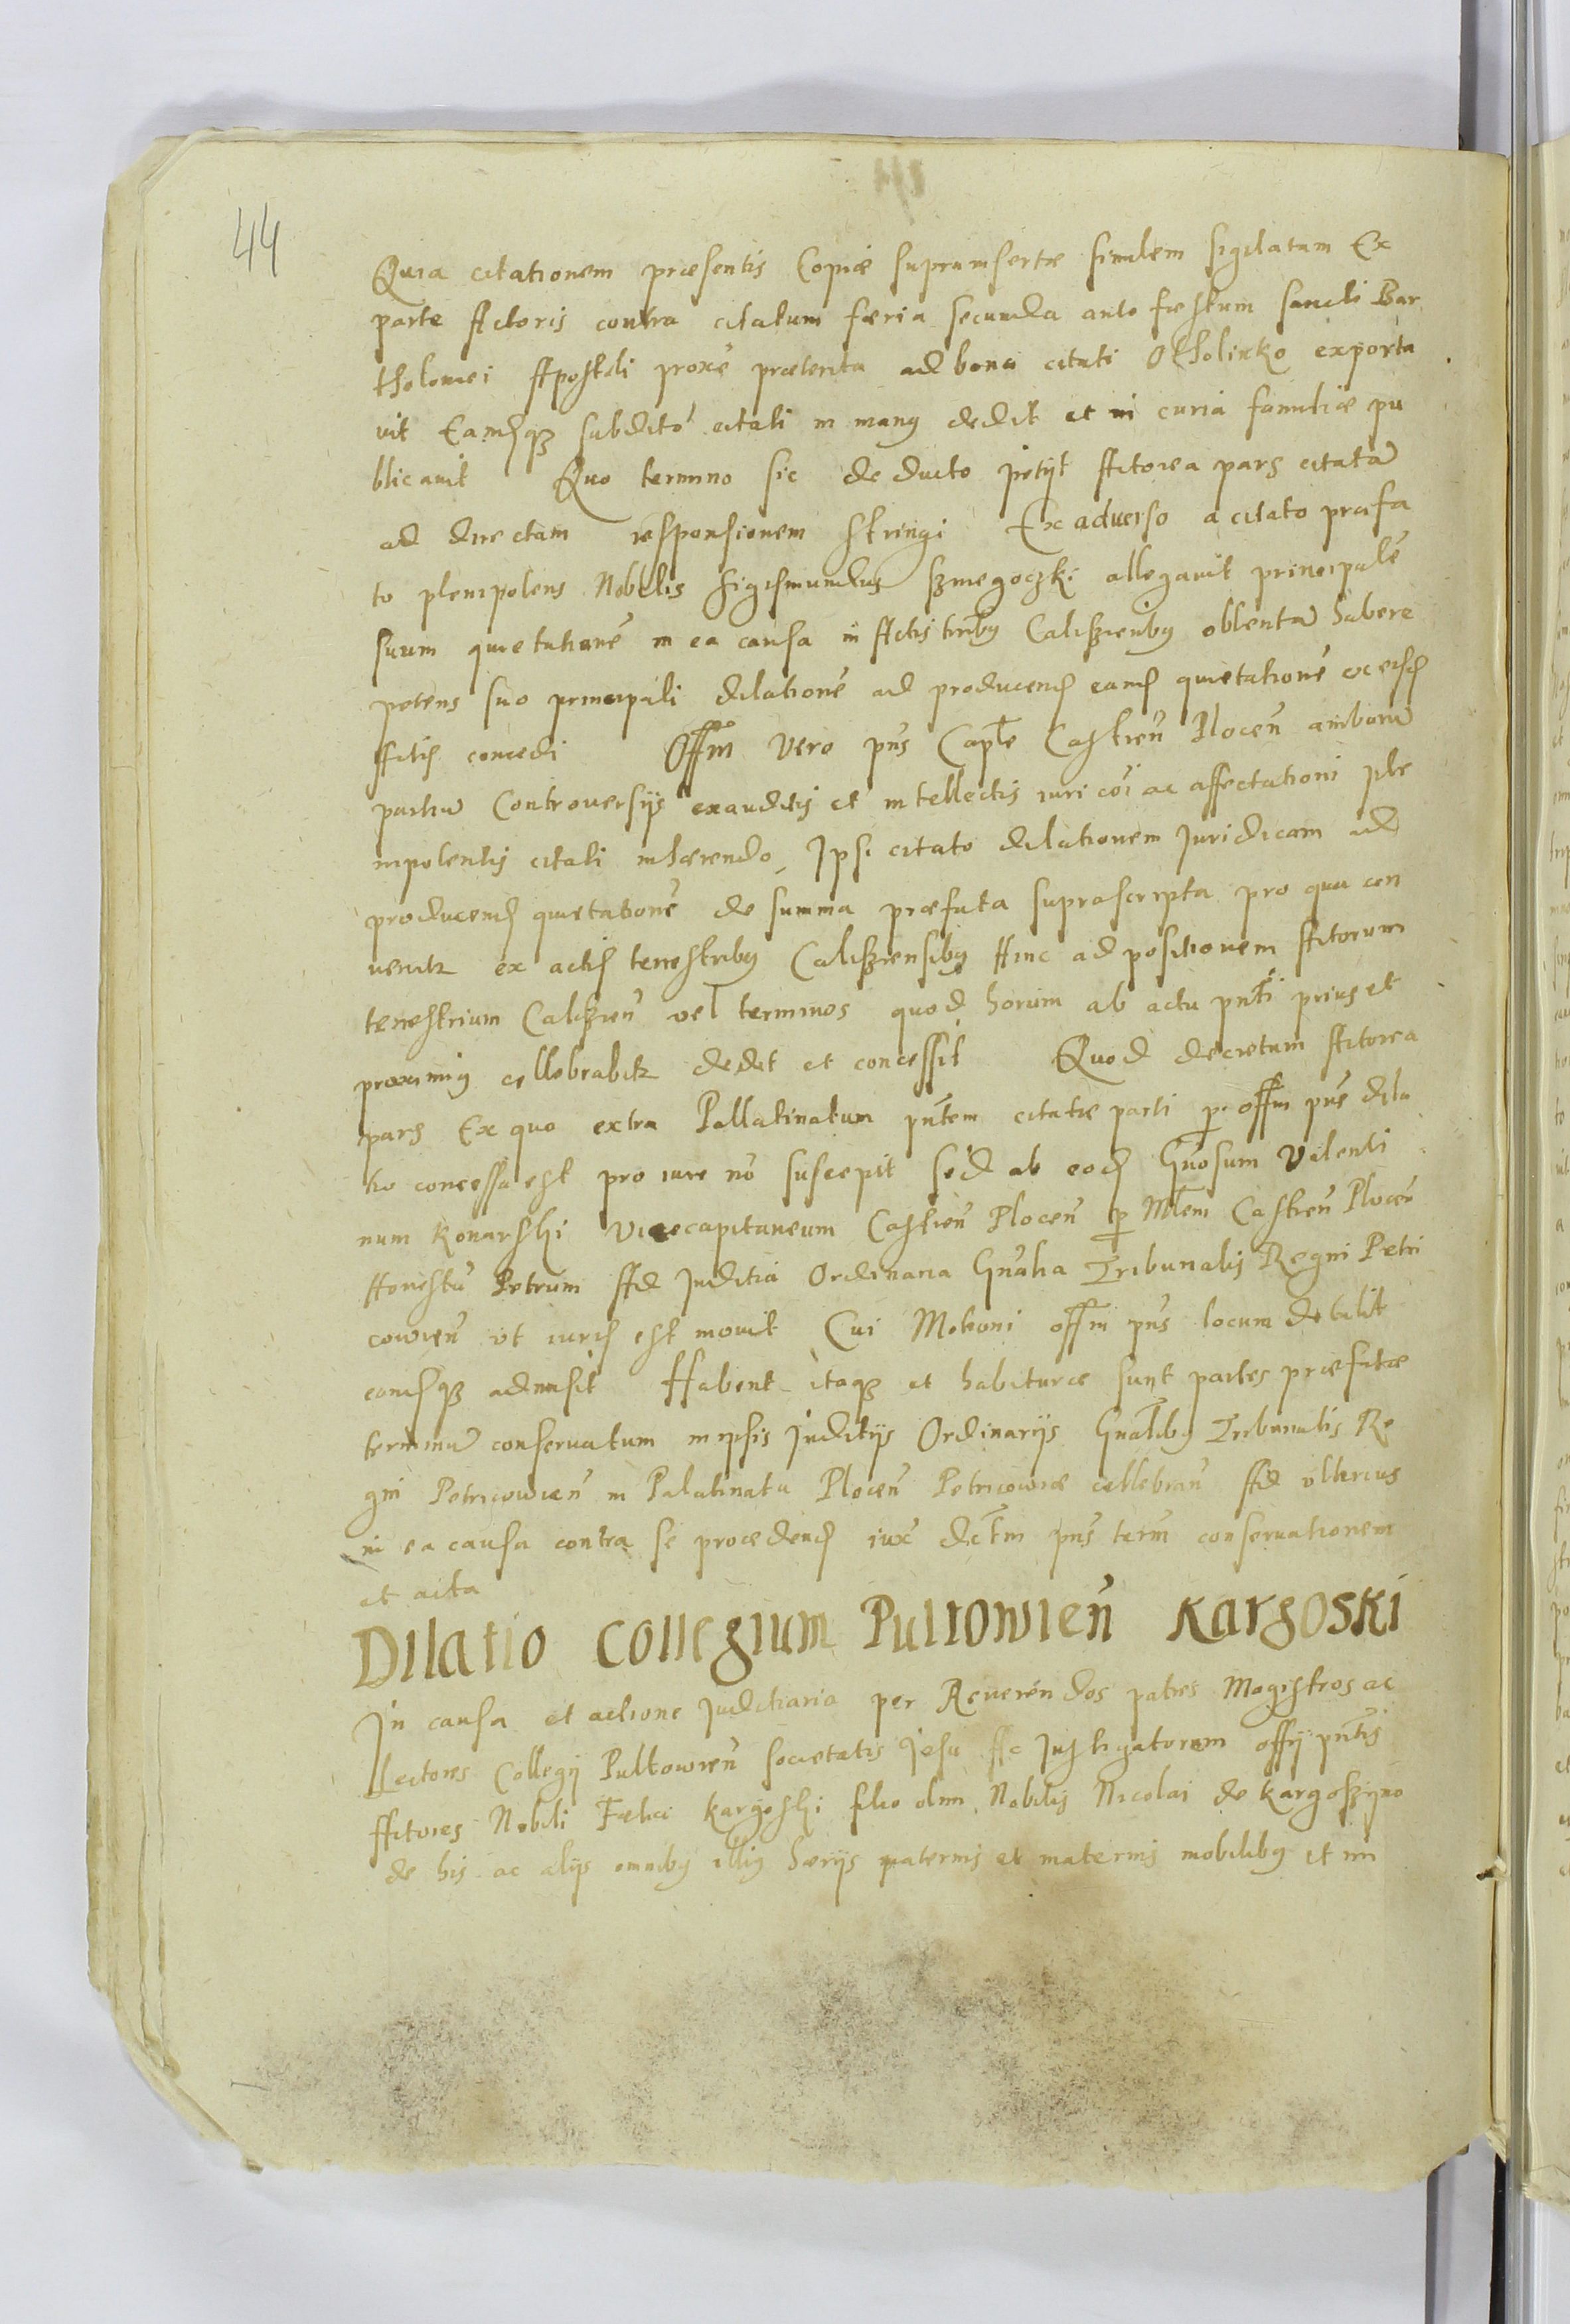 44
Quia citationem præsentis Copiæ suprainsertæ similem sigilatam Ex
parte Actoris contra citatum færia secunda ante fæstum sancti Bar
tholomei Apostoli proxe præterita ad bona citati Otholinko exporta
vit Eamdqz subdito citati in manus dedit et in curia familiæ pu
blicavit Quo termino sic deducto petijt Actorea pars citatū
ad directam responsionem stringi Ex adverso a citato præfa
to plenipotens Nobilis Sigismundus Szmegoczki allegavit principalē
suum quietationē in ea causa in Actis tribus Caliszienbus obtentā habere
petens suo principali dilationē ad producend eamd quietationē ex eisd
Actis concedi Offm vero pns Caple Castren Plocen ambarū
partiū Controversijs exauditis et intellectis iuri coi ac affectationi ple
nipotentis citati inhærendo, Ipsi citato dilationem Iuridicam ad
producend quietationē de summa præfata suprascripta pro qua con
venitr ex actis terrestribus Calisziensibus Hinc ad positionem Actorum
terrestrium Caliszien vel terminos quod horum ab actu pnti prius et
proximius cellebrabitr dedit et concessit Quod decretum Actorea
pars Ex quo extra Pallatinatum pntem citatæ parti p offm pns dila
tio concessa est pro iure nō suscepit sed ab eod Gnosum Valenti
num Konarski Vicecapitaneum Castren Plocen p Mtem Castren Plocen
Honestū Petrum Ad Juditia Ordinaria Gnalia Tribunalis Regni Petri
covien ut iuris est movit Cui Motioni offm pns locum detulit
eamdqz admisit Habent itaqz et habituræ sunt partes præfatæ
terminū conservatum in ipsis Juditijs Ordinarijs Gnalibus Tribunalis Re
gni Petricovien in Palatinatu Plocen Petricoviæ cellebran Ad ulterius
in ea causa contra se procedend iux dctm pns term conservationem
et acta
Dilatio Collegium Pultowien Kargoski
In causa et actione Juditiaria per Reverendos patres Magistros ac
Lectores Collegij Pultowien societatis Jesu Ac Instigatorem offij pntis
Actores Nobili Fælici Kargoski filio olim Nobilis Nicolai de Kargoszyno
de his ac alijs omnibus illius hærijs paternis et maternis mobilibus et im